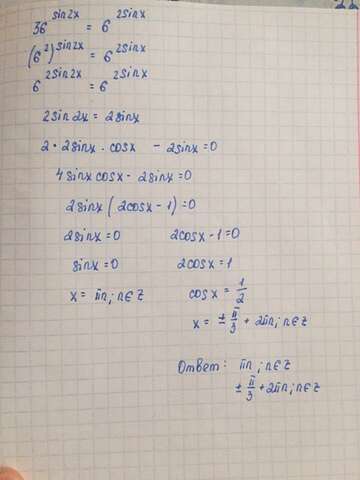 36^sin2x = 6^2sinx
(6²)^sin2x = 6^2sinx
6^2sin2x = 6^2sinx
2sin2x = 2sinx
2·2sinx·cosx - 2sinx=0
4sinxcosx - 2sinx=0
2sinx(2cosx-1)=0
2sinx=0 2cosx-1=0
sinx=0 2cosx=1
x= πn; n∈Z cosx= 1/2
x= ± π/3 + 2πn; n∈Z
Ответ: πn; n∈Z
± π/3 + 2πn; n∈Z